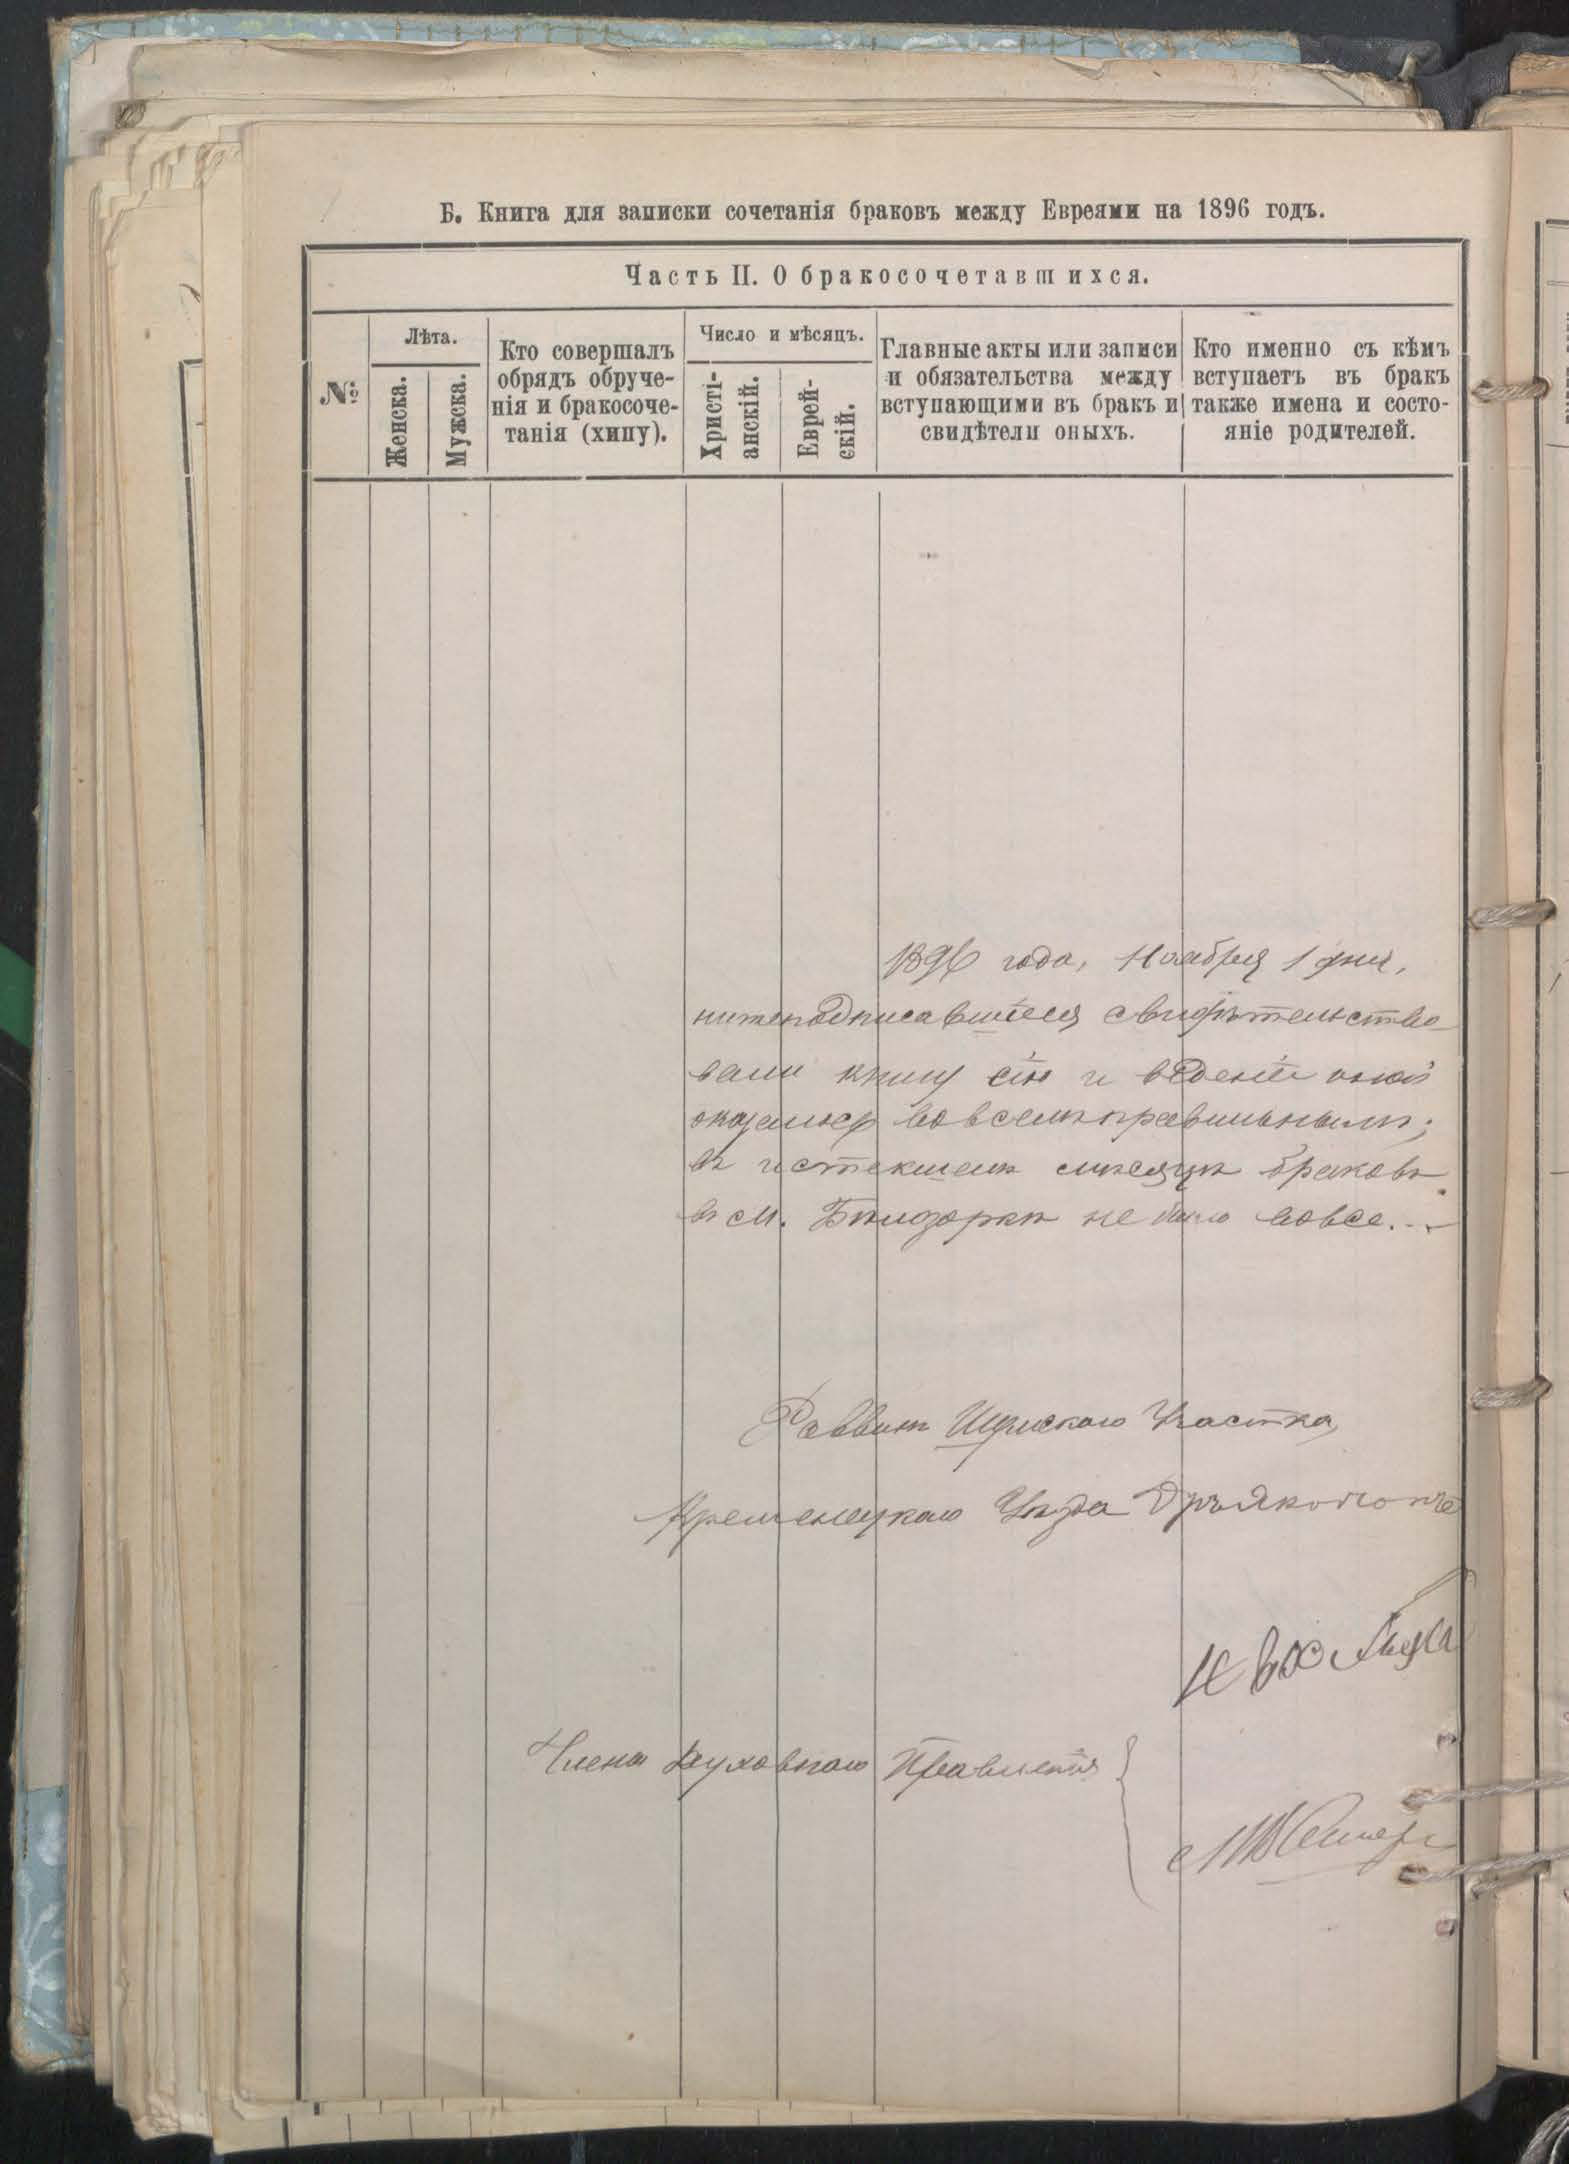 Б. Книга для записки сочетанія браковъ между Евреями на 1896 годъ.
Часть II. О бракосочетавшихся.
№
Лѣта.
Женска.
Мужска.
Кто совершалъ
обрядъ обруче-
нія и бракосоче-
танія (хипу).
Число и мѣсяцъ.
Христі-
анскій.
Еврей-
скій.
Главные акты или записи
и обязательства между
вступающими въ бракъ и
свидѣтели оныхъ.
Кто именно съ кѣмъ
вступаетъ въ бракъ
также имена и состо-
яніе родителей.
1896 года, Ноября 1 дня,
нижеподписавшіеся свидѣтельство
вали книгу сію и веденіе оной
оказалось вовсемъ правильнымъ;
въ истекшемъ мѣсяцѣ браковъ
въ м. Бѣлозоркѣ не было вовсе.
Раввинъ Шумскаго Участка,
Кременецкаго Уѣзда
Члены Духовнаго Правленія